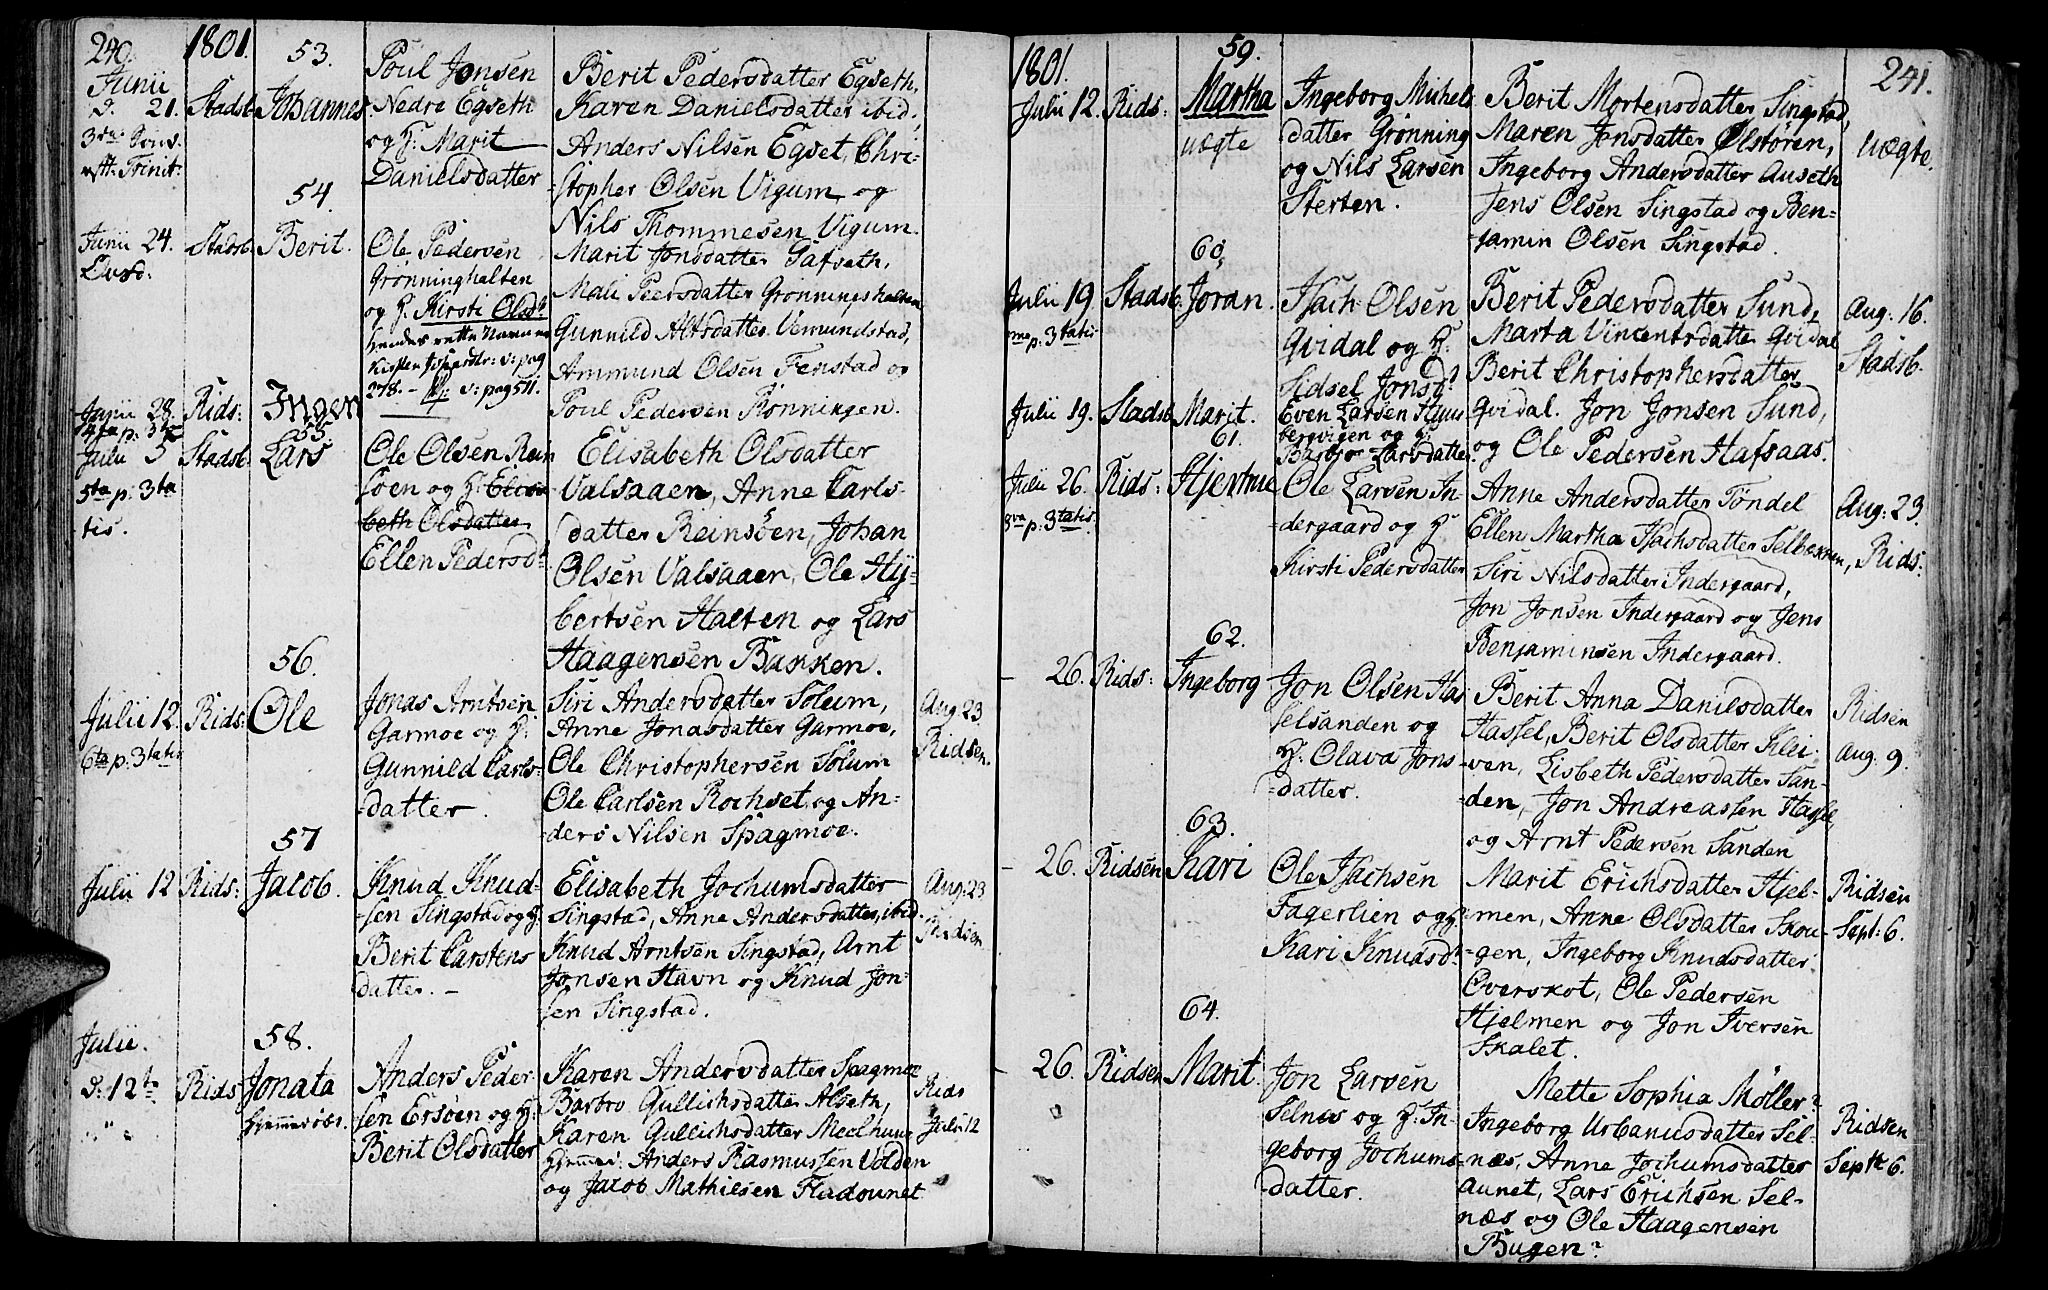 240. 1801. 53.
Junii
d. 21. Stadsb. Johannes
3die Søns.
eft. Trinit:
Poul Jonsen
Nedre Egseth
og H: Marit
Danielsdatter
Berit Pedersdatter Egseth,
Karen Danielsdatter ibid,
Anders Nilsen Egset, Chri-
stopher Olsen Vigum og
Nils Thommesen Vigum.
54.
Junii 24. Stadsb. Berit.
Ole Pedersen
Grønninghalten
og H. Kirsti Olsd:
hendes rette Navn er
278. - v: pag 511.
Marit Jonsdatter Gafseth,
Mali Peersdatter Grønningshalten
Gunnild Alfsdatter Vemundstad,
Ammund Olsen Fenstad og
Poul Pedersen Rønningen.
Junii 28. Rids: Ingen
4ta p: 3ta
55
Julii 5 Stadsb. Lars
5ta p: 3ta
tis.
Ole Olsen Rein
søen og H: Elisa
beth Olsdatter
Ellen Pedersd:
Elisabeth Olsdatter
Valsaaen, Anne Carls-
datter Reinsøen, Johan
Olsen Valsaaen, Ole Hy-
bertsen Halten og Lars
Haagensen Bakken.
56.
Julii 12. Rids: Ole
6ta p: 3tatis
Jonas Arntsen
Garmoe og H:
Gunnild Carls-
-datter.
Siri Andersdatter Solum,
Anne Jonasdatter Garmoe,
Ole Christophersen Solum
Ole Carlsen Rochset, og An-
-ders Nilsen Spagmoe.
Aug: 23.
Ridsen.
57
Julii 12 Rids: Jacob.
Knud Knud-
-sen Singstad og H:
Berit Carstens
datter. -
Elisabeth Jochumsdatter
Singstad, Anne Andersdatter, ibid.
Knud Arntsen Singstad, Arnt
Jonsen Havn og Knud Jon-
sen Singstad.
Aug: 23
Ridsen
58.
Julii.
d: 12te Rids Jonata
hjemmedøbt.
Anders Peder
sen Ersøen og H:
Berit Olsdatter
Karen Andersdatter Spagmoe
Barbro Gullichsdatter Alseth,
Karen Gullichsdatter Meelhuus
Anders Rasmussen Volden
og Jacob Mathiesen Fladaunet
Rids
Julii 12
1801. 59. 241.
Julii 12. Rids: Martha
uægte
Ingeborg Michels
datter Grønning
og Nils Larsen
Sterten.
Berit Mortensdatter Singstad,
Maren Jonsdatter Ølstøren,
Ingeborg Andersdatter Auseth
Jens Olsen Singstad og Ben-
-jamin Olsen Singstad.
Uægte.
60,
Julii 19 Stadsb. Joran.
p: 3tatis
Isach Olsen
Qvidal og H:
Sidsel Jonsd:
Berit Pedersdatter Sund,
Marta Vincentsdatter Qvidal
Berit Christophersdatter
Qvidal. Jon Jonsen Sund,
og Ole Pedersen Hafsaas.
Aug: 16.
Stadsb.
Julii 19. Stadsb Marit.
Even Larsen
og H:
Barbro Larsdatter
61.
Julii 26. Rids: Hjertrue
8va p: 3tatis.
Ole Larsen In-
-dergaard og H:
Kirsti Pedersdatter
Anne Andersdatter Tøndel
Ellen Martha Isachsdatter Selbekken,
Siri Nilsdatter Indergaard,
Jon Jonsen Indergaard og Jens
Benjaminsen Indergaard.
Aug: 23.
Rids:
62.
- 26. Rids: Ingeborg
Jon Olsen Has
selsanden og
H: Olava Jons-
-datter.
Berit Anna Danilsdatter
Hassel, Berit Olsdatter Klei-
-ven, Lisbeth Pedersdatter San-
-den, Jon Andreassen Hassel,
og Arnt Pedersen Sanden
Ridsen
Aug: 9.
63.
- 26. Ridsen Kari
Ole Isachsen
Fagerlien og H:
Kari Knudsd:
Marit Erichsdatter Hjel-
-men, Anne Olsdatter Skou-
-gen, Ingeborg Knudsdatter
Overskot, Ole Pedersen
Hjelmen og Jon Iversen
Skalet.
Ridsen
Sept: 6.
64.
- 26. Ridsen Marit.
Jon Larsen
Selnes og H: In-
geborg Jochums-
datter.
Mette Sophia Møller?
Ingeborg Urbanusdatter Sel-
-næs, Anne Jochumsdatter
Aunet, Lars Erichsen Sel-
-næs og Ole Haagensen
Bugen?
Ridsen
Septr 6.